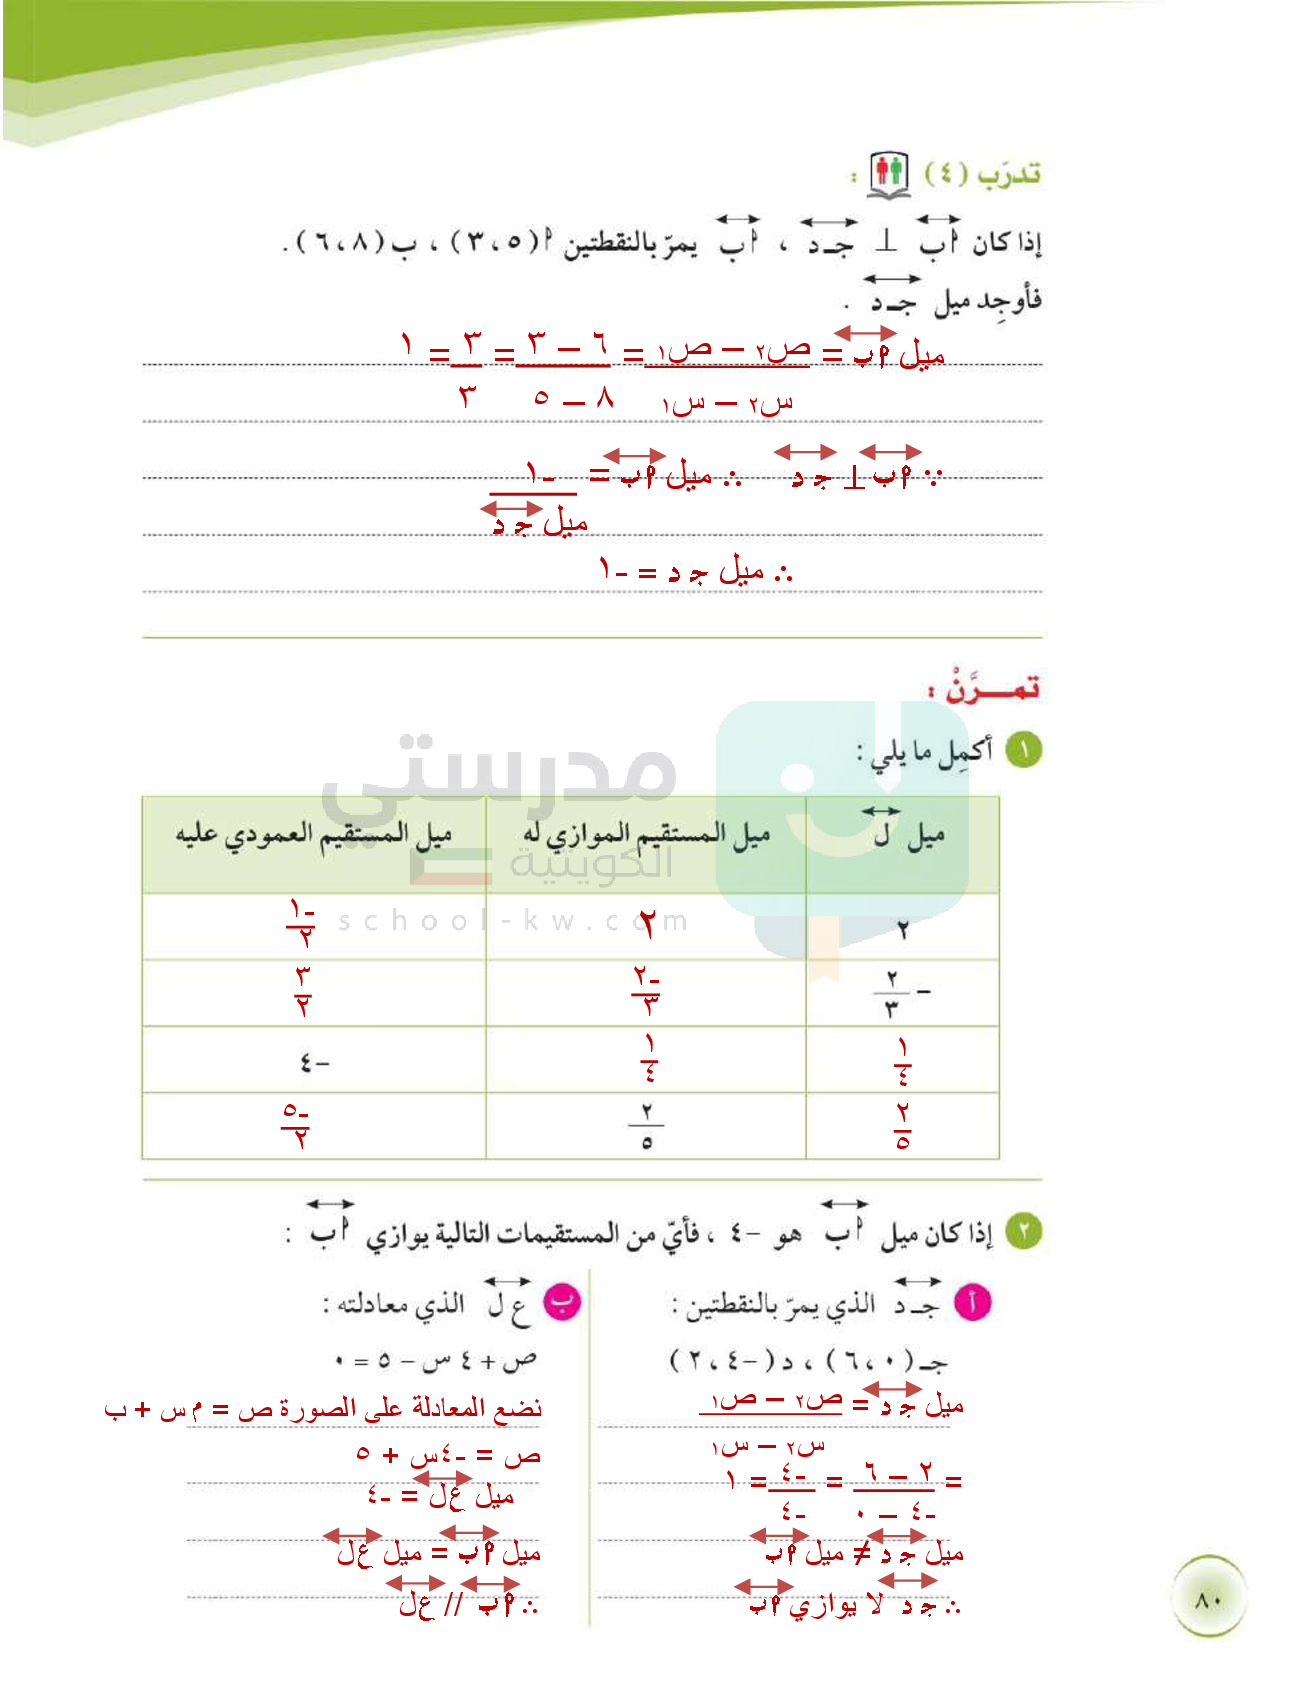 تدرّب (٤) :
إذا كان أب ⊥ جـ د ، أب يمرّ بالنقطتين أ(٥ ، ٣) ، ب(٨ ، ٦) .
فأوجِد ميل جـ د .
ميل أب = ص٢ – ص١ = ٦ – ٣ = ٣ = ١
س٢ – س١ ٨ – ٥ ٣
∵ أب ⊥ ج د ∴ ميل أب = -١
ميل ج د
∴ ميل ج د = -١
تمــرَّنْ :
١ أكمِل ما يلي :
مدرستي
الكويتية
school-kw.com
ميل ل ميل المستقيم الموازي له ميل المستقيم العمودي عليه
٢ ٢ -١/٢
– ٢/٣ -٢/٣ ٣/٢
١/٤ ١/٤ –٤
٢/٥ ٢/٥ -٥/٢
٢ إذا كان ميل أب هو –٤ ، فأيّ من المستقيمات التالية يوازي أب :
أ جـ د الذي يمرّ بالنقطتين :
جـ(٠ ، ٦) ، د(–٤ ، ٢)
ميل ج د = ص٢ – ص١
س٢ – س١
= ٢ – ٦ = -٤ = ١
-٤ – ٠ -٤
ميل ج د ≠ ميل أب
∴ ج د لا يوازي أب
ب ع ل الذي معادلته :
ص + ٤ س – ٥ = ٠
نضع المعادلة على الصورة ص = م س + ب
ص = -٤س + ٥
ميل ع ل = -٤
ميل أب = ميل ع ل
∴ أب // ع ل
٨٠